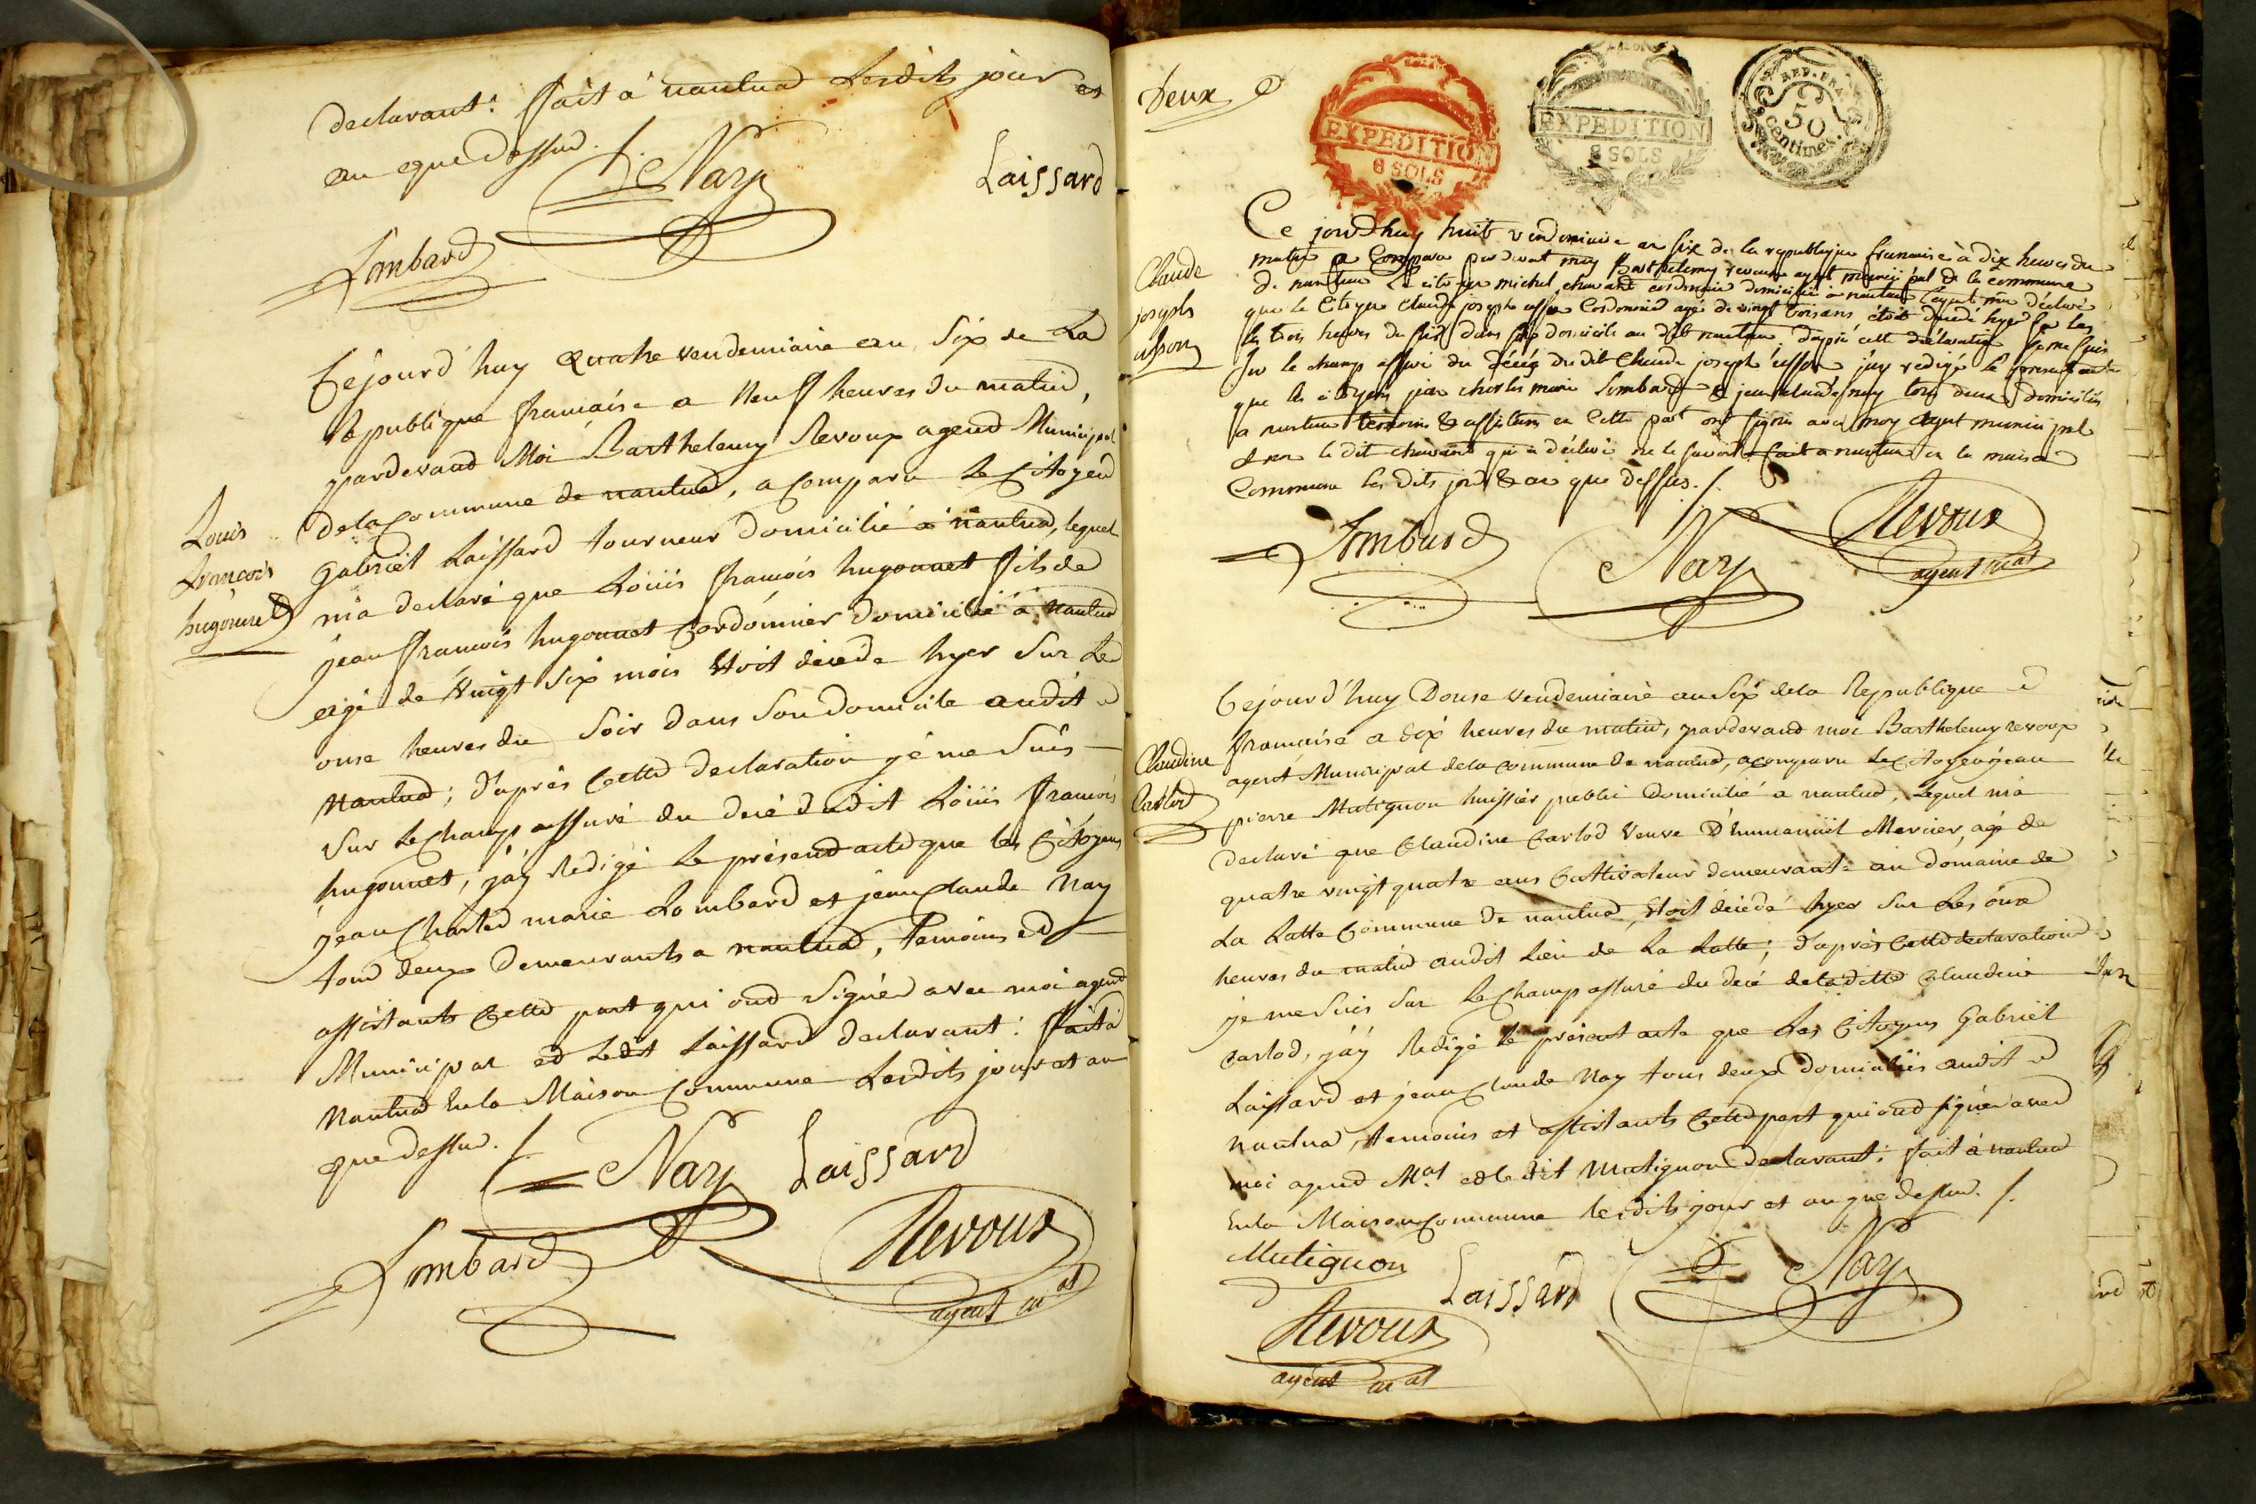 declarant. fait à nantua lesdits jour et
an que dessus ./.
Nay
Laissard
Lombard
Louis
francois
hugonnet
Cejourd'huy Quatre vendemiaire an Six de La
Republique francaise a Neuf heures du matin,
pardevand Moi Barthelemy Revoux agend Municipal
de la Commune de nantua, a Comparu Le Citoyen
Gabriel Laissard tourneur domicilié a nantua, lequel
m'a declaré que Loüis francois hugonnet fils de
jean francois hugonnet Cordonnier domicilié à nantua
agé de Vingt Six mois Etoit decedé hyer Sur Les
onse heures du Soir dans Son domicile audit
Nantua; d'après Cette declaration je me Suis
Sur Le Champ assuré du decé dudit Loüis francois
hugonnet, j'ay Redigé Le présend acte que les Citoyens
jean Charles marie Lombard et jean Claude Nay
tous deux demeurants a nantua, temoins et
assistants Cette part qui ond Signés avec moi agend
Municipal et Ledit Laissard declarant. fait à
Nantua En la Maison Commune Lesdits jour et an
que dessus ./.
Nay Laissard
Lombard Revoux
agent mal
Deux
EXPEDITION
8 SOLS
EXPEDITION
8 SOLS
REP. FRA.
50
centimes
Claude
joseph
Ce jourdhuy huit vendemiaire an six de la republique francaise à dix heures du
matin a Comparu par devant moy Barthelemy revoux agent municipal de la commune
de nantua Le citoyen michel chavant cordonnier domicilié à nantua lequel m'a déclaré
que le Citoyen Claude joseph Cordonnier agé de vingt trois ans étoit décédé hyer sur les
les trois heures du soir dans son domicile au dit nantua d'après cette déclaration je me suis
sur le champ assuré du décés du dit Claude joseph j'ay redigé le present acte
que les citoyens jean charles marie Lombard & jean claude nay tous deux domiciliés
a nantua témoins & assistans en Cette part ont signé avec moy agent municipal
& non le dit chavant qui a déclaré ne le savoir fait a nantua en la maison
Commune les dits jour & an que dessus ./.
Lombard Nay Revoux
agent mal
Claudine
Carlod
Cejourd'huy Douse vendemiaire an Six de la Republique
francaise a dix heures du matin, pardevand moi Barthelemy revoux
agent Municipal de la Commune de nantua, a comparu Le Citoyen jean
pierre Mutignon huissier public domicilié a nantua, Lequel m'a
declaré que Claudine Carlod Veuve D'humanuel Mercier, agé de
quatre vingt quatre ans Cultivateur demeurante au domaine de
La Latte Commune de nantua, Etoit decedé hyer Sur Les onse
heures du matin audit Lieu de La Latte; d'après Cette declaration
je me Suis Sur Le Champ assuré du decé de ladite Claudine
Carlod, j'ay Redigé le présent acte que Les Citoyens Gabriël
Laissard et jean Claude Nay tous deux domiciliés audit
nantua, temoins et assistants Cette part qui ond signés avec
moi agend Mal et ledit Mutignon declarant. fait à nantua
En la Maison Commune lesdits jour et an que dessus ./.
Mutignon Laissard Nay
Revoux
agent mal